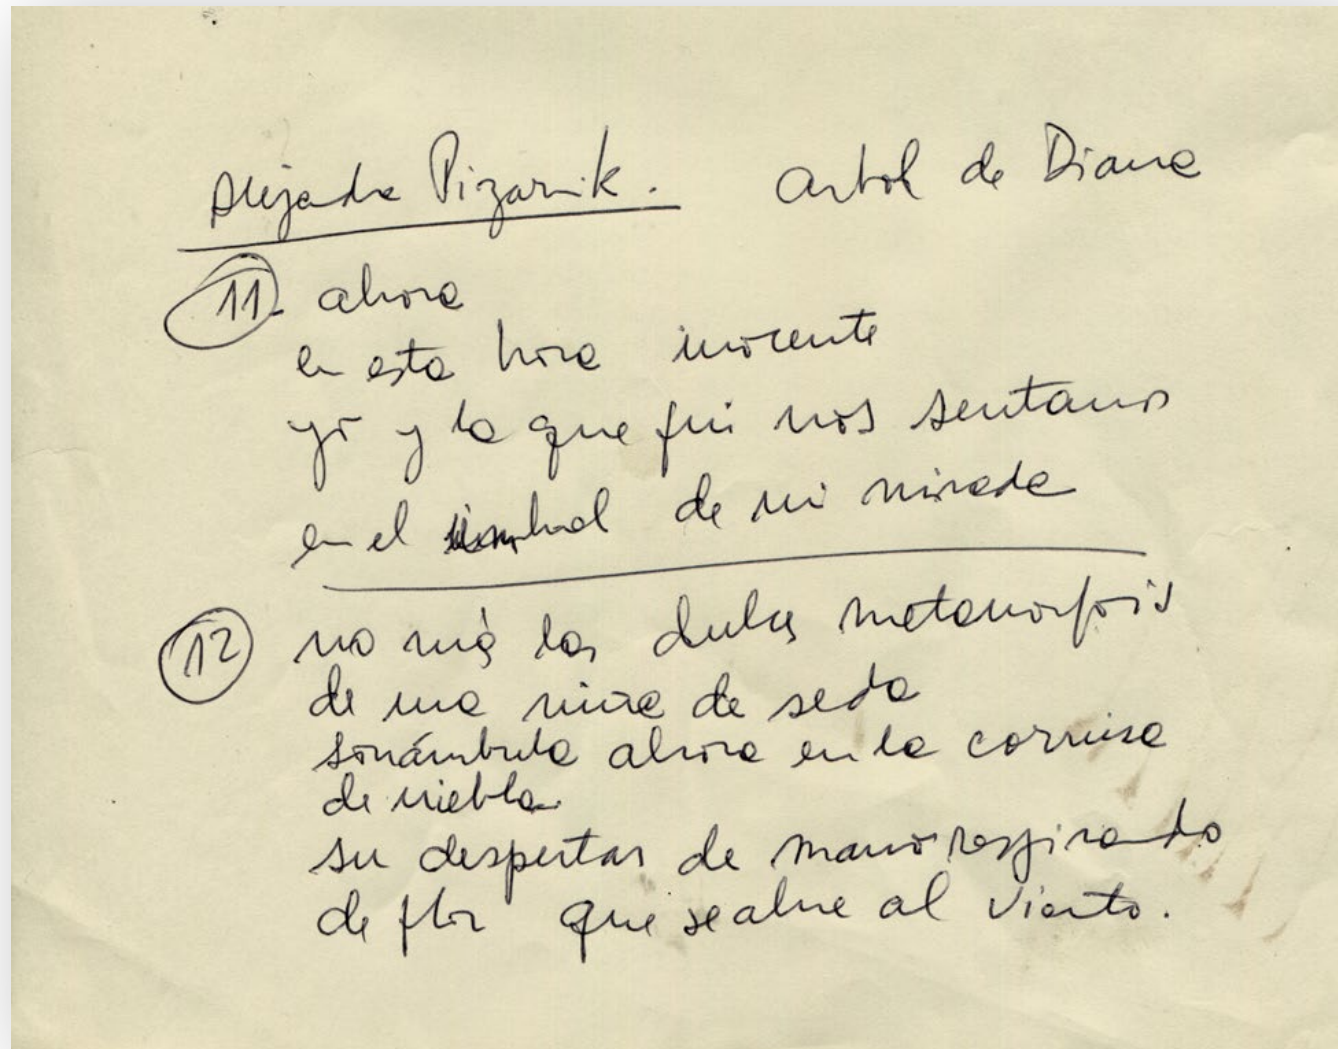 Alejandra Pizarnik. Arbol de Diana
11. ahora
en esta hora inocente
yo y la que fui nos sentamos
en el umbral de mi mirada
12 no más las dulces metamorfosis
de una niña de seda
sonámbula ahora en la cornisa
de niebla
su despertar de mano respirando
de flor que se abre al viento.